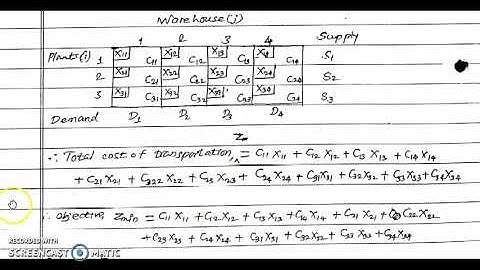 Warehouse(j)
1 2 3 4 Supply
Plants(i) 1 X11 C11 X12 C12 X13 C13 X14 C14 S1
2 X21 C21 X22 C22 X23 C23 X24 C24 S2
3 X31 C31 X32 C32 X33 C33 X34 C34 S3
Demand D1 D2 D3 D4
Zm
∴ Total cost of transportation, = C11 X11 + C12 X12 + C13 X13 + C14 X14
+ C21 X21 + C222 X22 + C23 X23 + C24 X24 + C31 X31 + C32 X32 + C33 X33 + C34 X34
∴ objective, Zmin = C11 X11 + C12 X12 + C13 X13 + C14 X14 + C21 X21 + C22 X22
+ C23 X23 + C24 X24 + C31 X31 + C32 X32 + C33 X33 + C34 X34
RECORDED WITH
SCREENCAST MATIC